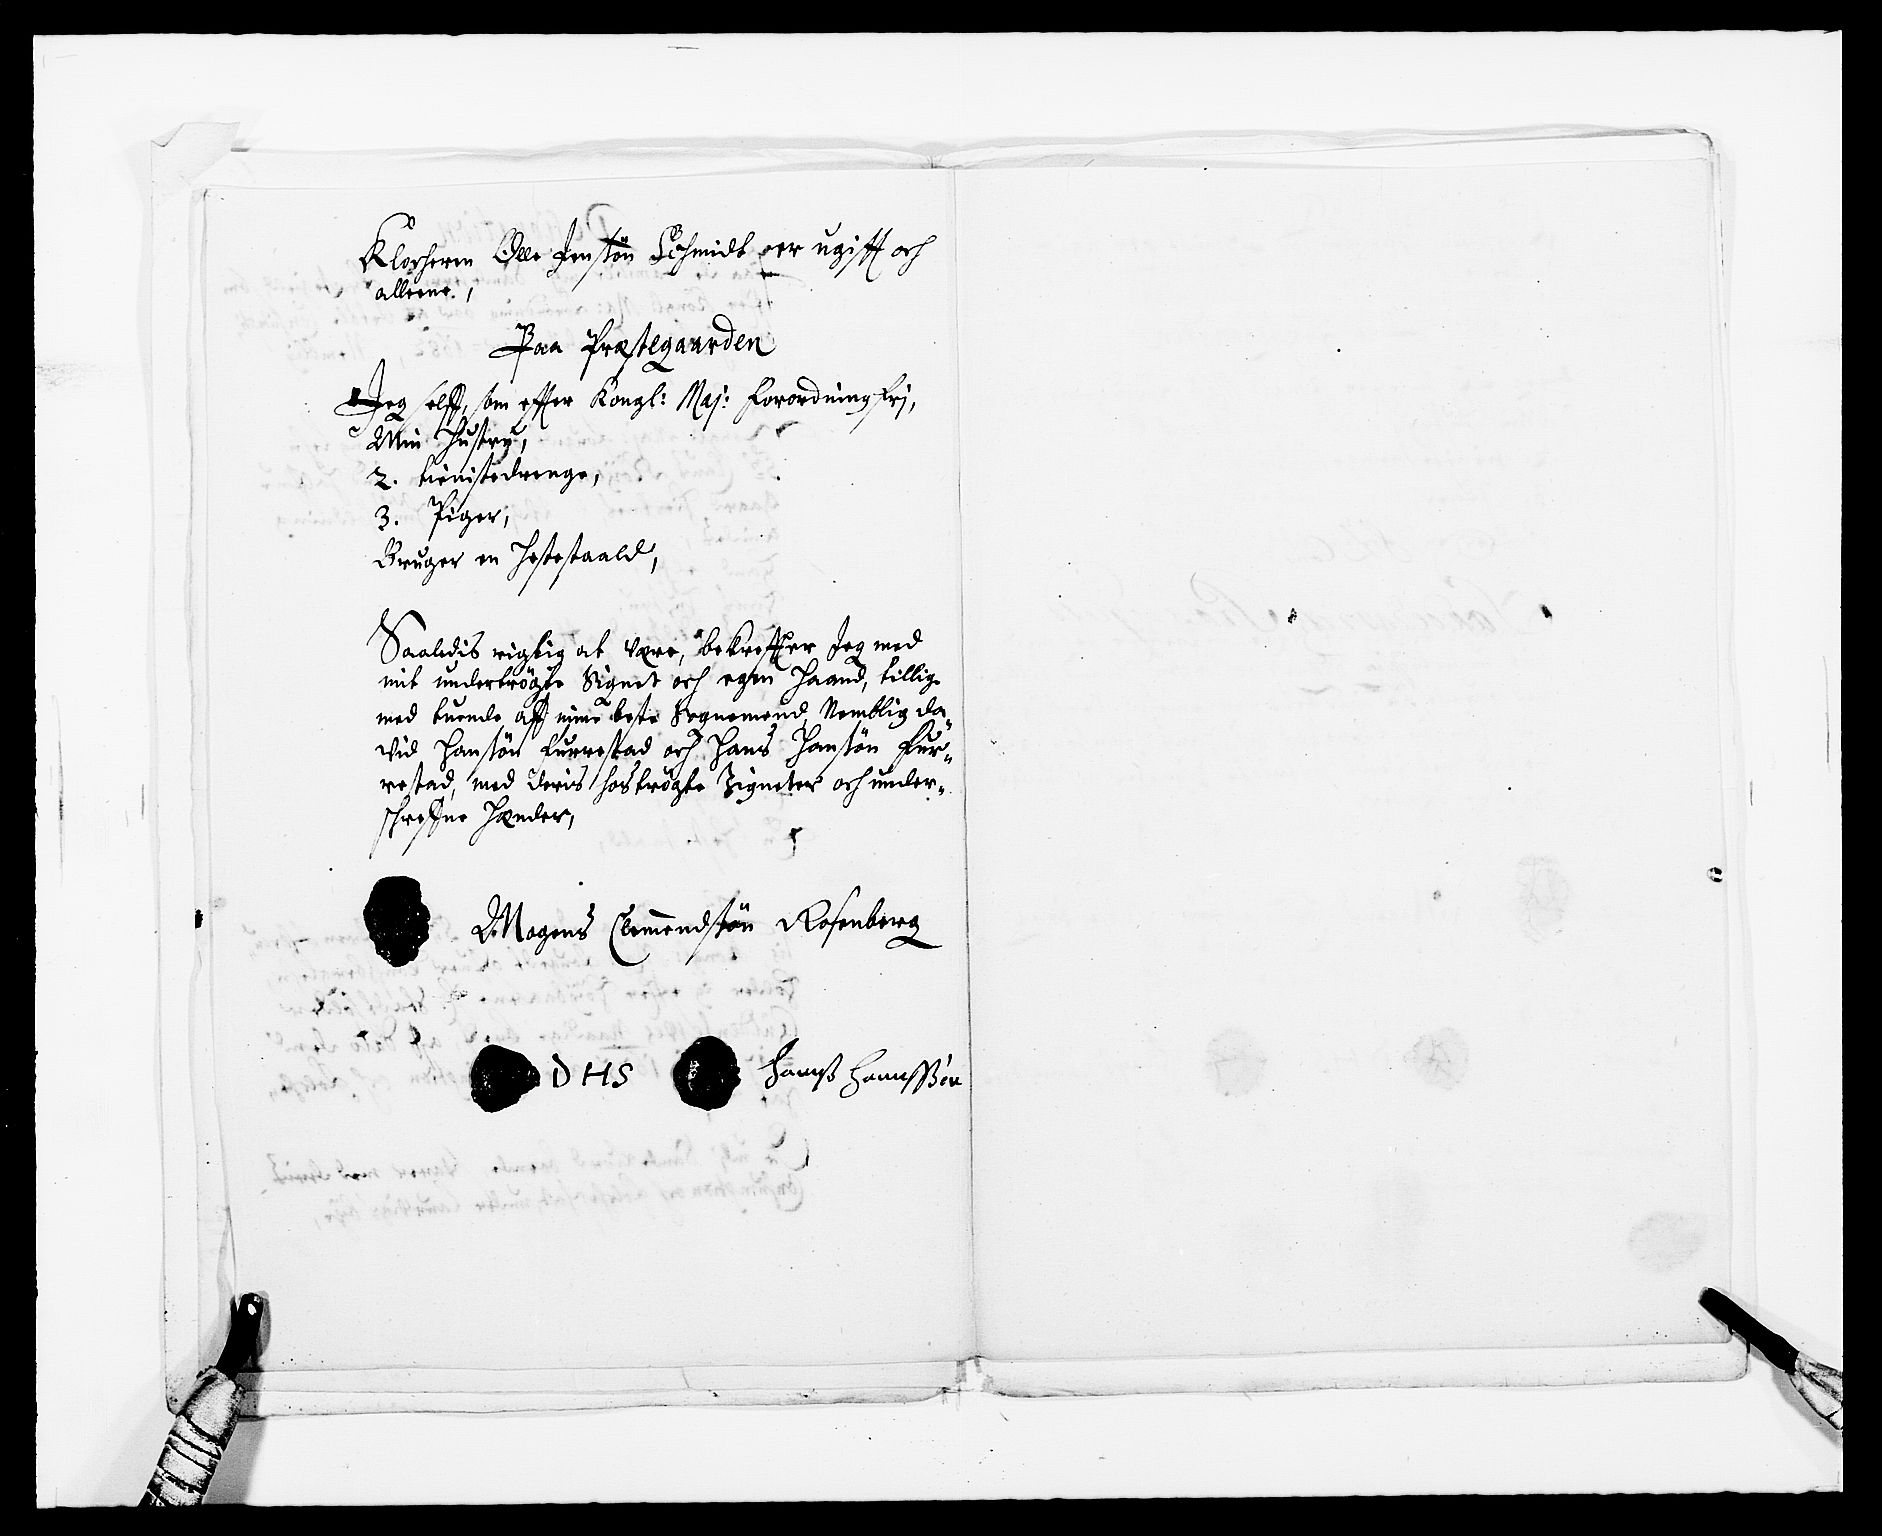 Klocheren Olle Jenssön Schmidt, er ugifft och
alleene.,
Paa Præstegaarden
Jeg selff, som effter Kongl: Maj: forordning frj,
Min Hustru,
2. tienistedrenge,
3. Piger,
Bruger en Hestestaald,
Saaledis rigtig at være, bekreffter Jeg med
mit undertrögte Signet och egen Haand, tillige
med tuende aff mine beste Sognemend, Nemblig Da„
vid Hanssön Furrestad och Hans Hanssön Fur„
restad, med deris hoströgte Zigneter och under„
schreffne Hænder,
Mogens Clemmendssön Rosenberg
DHS
Hanß Hanßßön